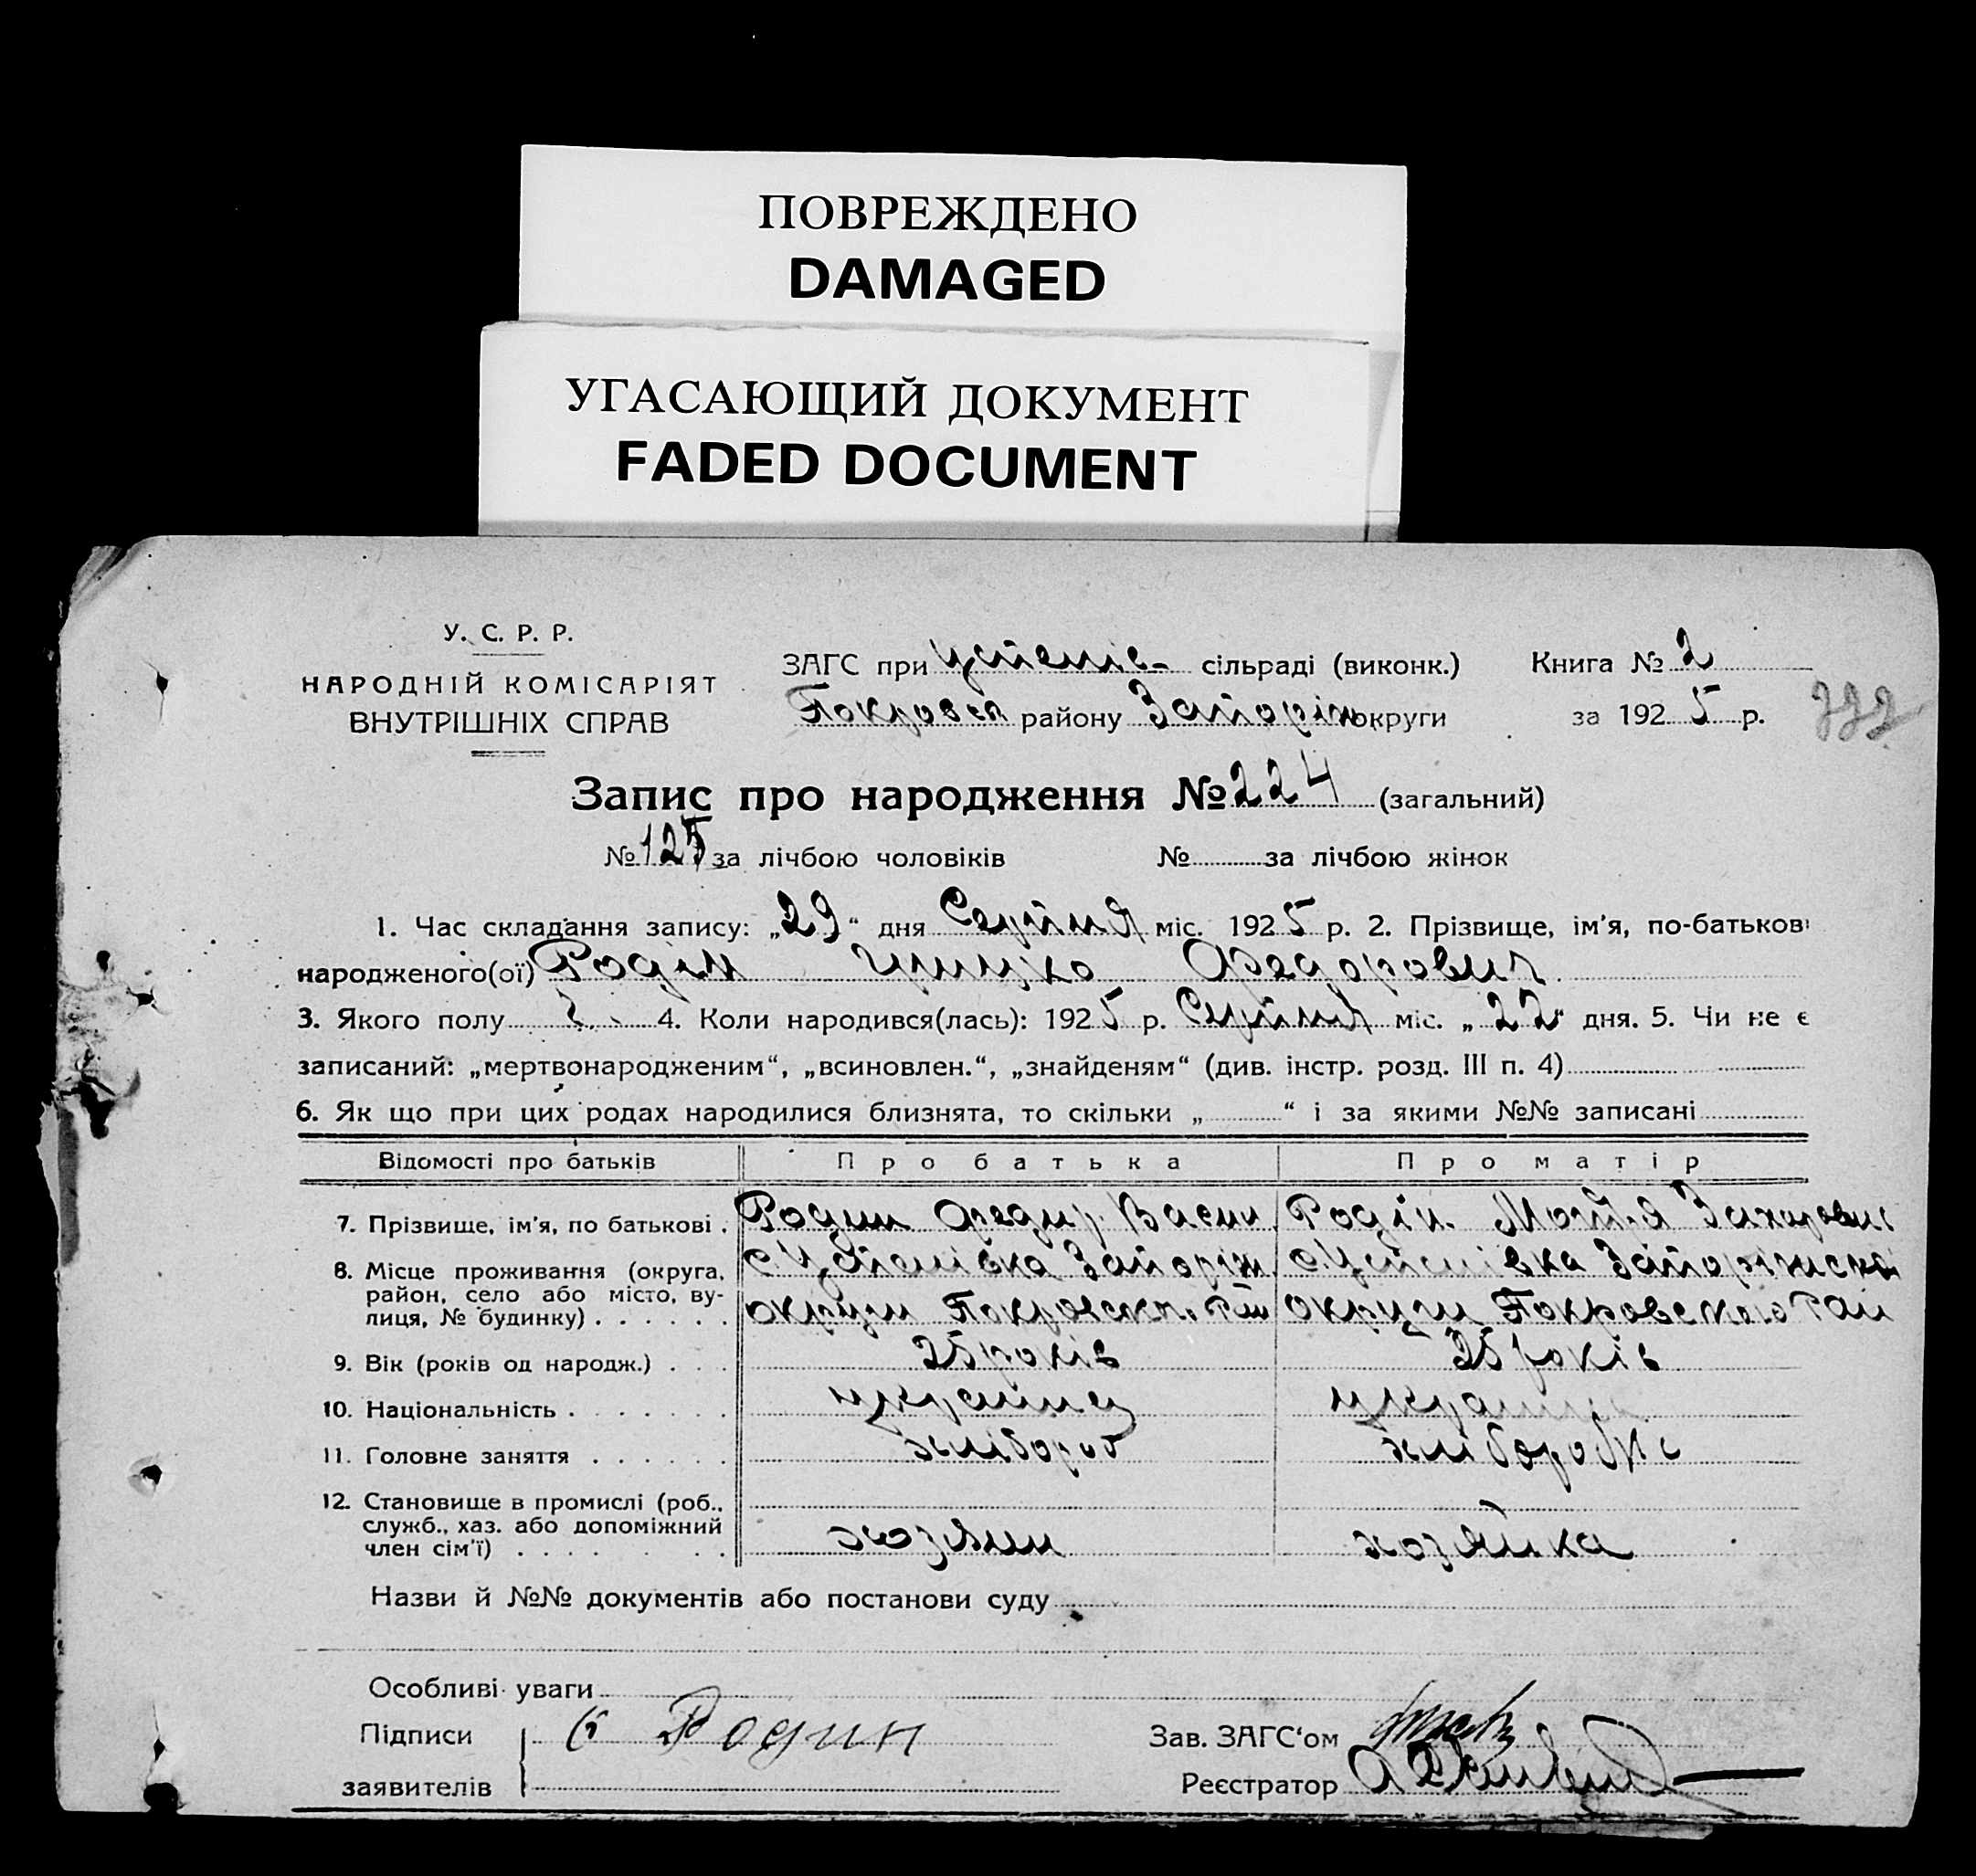 ПОВРЕЖДЕНО
DAMAGED
УГАСАЮЩИЙ ДОКУМЕНТ
FADED DOCUMENT
У. С. Р. Р.
НАРОДНІЙ КОМІСАРІЯТ
ВНУТРІШНІХ СПРАВ
ЗАГС при Успенів- сільраді (виконк.) Книга № 2
Покровськ району Запоріж округи за 1925 р.
Запис про народження № 224 (загальний)
№ 125 за лічбою чоловіків № за лічбою жінок
1. Час складання запису: „29“ дня Серпня міс. 1925 р. 2. Прізвище, ім'я, по-батькові
народженого(ої) Родін Грицко Федорович
3. Якого полу ч. 4. Коли народився(лась): 1925 р. Серпня міс. „22“ дня. 5. Чи не є
записаний: „мертвонародженим“, „всиновлен.“, „знайденям“ (див. інстр. розд. III п. 4)
6. Як що при цих родах народилися близнята, то скільки „ “ і за якими №№ записані
Відомості про батьків Про батька Про матір
7. Прізвище, ім'я, по батькові . Родин Федир Васил Родін Мотря Захаровис
8. Місце проживання (округа, с. Успенівка Запоріж с. Успенівка Запоріжської
район, село або місто, ву-
лиця, № будинку) . . . . . . округи Покровськ. Рай округи Покровского Рай
9. Вік (років од народж.) . . . 25 років 25 років
10. Національність . . . . . . . украйнец
11. Головне заняття . . . . . . хлібороб хліборобка
12. Становище в промислі (роб.,
служб., хаз. або допоміжний
член сім'ї) . . . . . . . хозяин хозяйка
Назви й №№ документів або постанови суду
Особливі уваги
Підписи Родин Зав. ЗАГС'ом
заявителів Реєстратор